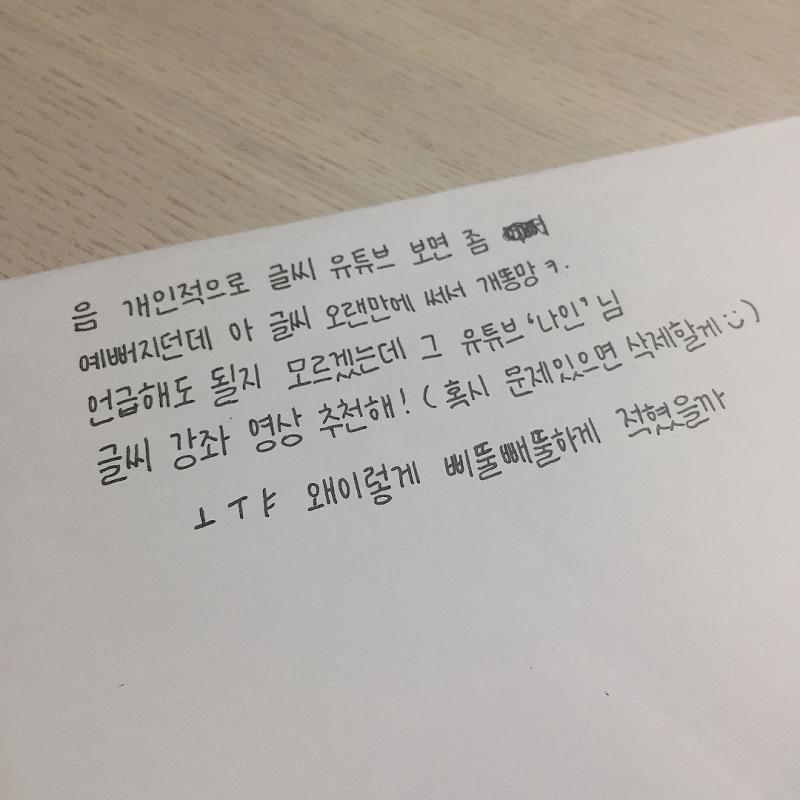 음 개인적으로 글씨 유튜브 보면 좀
예뻐지던데 아 글씨 오랜만에 써서 개똥망 ㅋ.
언급해도 될지 모르겠는데 그 유튜브 '나인' 님
글씨 강좌 영상 추천해! (혹시 문제있으면 삭제할게 :))
ㅗㅜㅑ 왜이렇게 삐뚤빼뚤하게 적혔을까